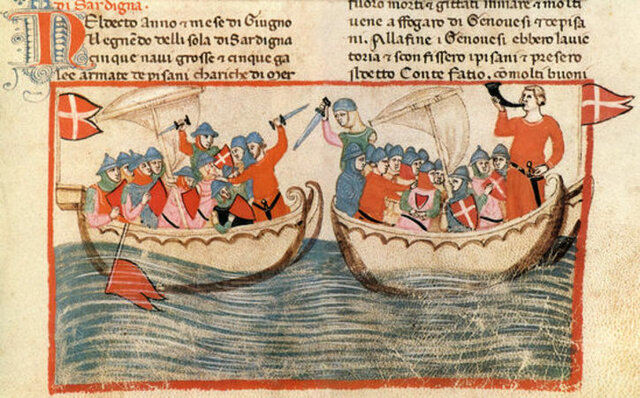 di Sardigna.
Nel detto Anno e mese di Giugno
vegnendo delli sola di Sardigna
cinque navi grosse e cinque ga
lee armate de pisani chariche di mer
fuoro morti e gittati in mare e molti
vene affogar di Genovesi et de pisa
ni. Alla fine i Genovesi ebbero la vic
toria e sconfissero i pisani e presero
il detto Conte Fatio. co molti buoni